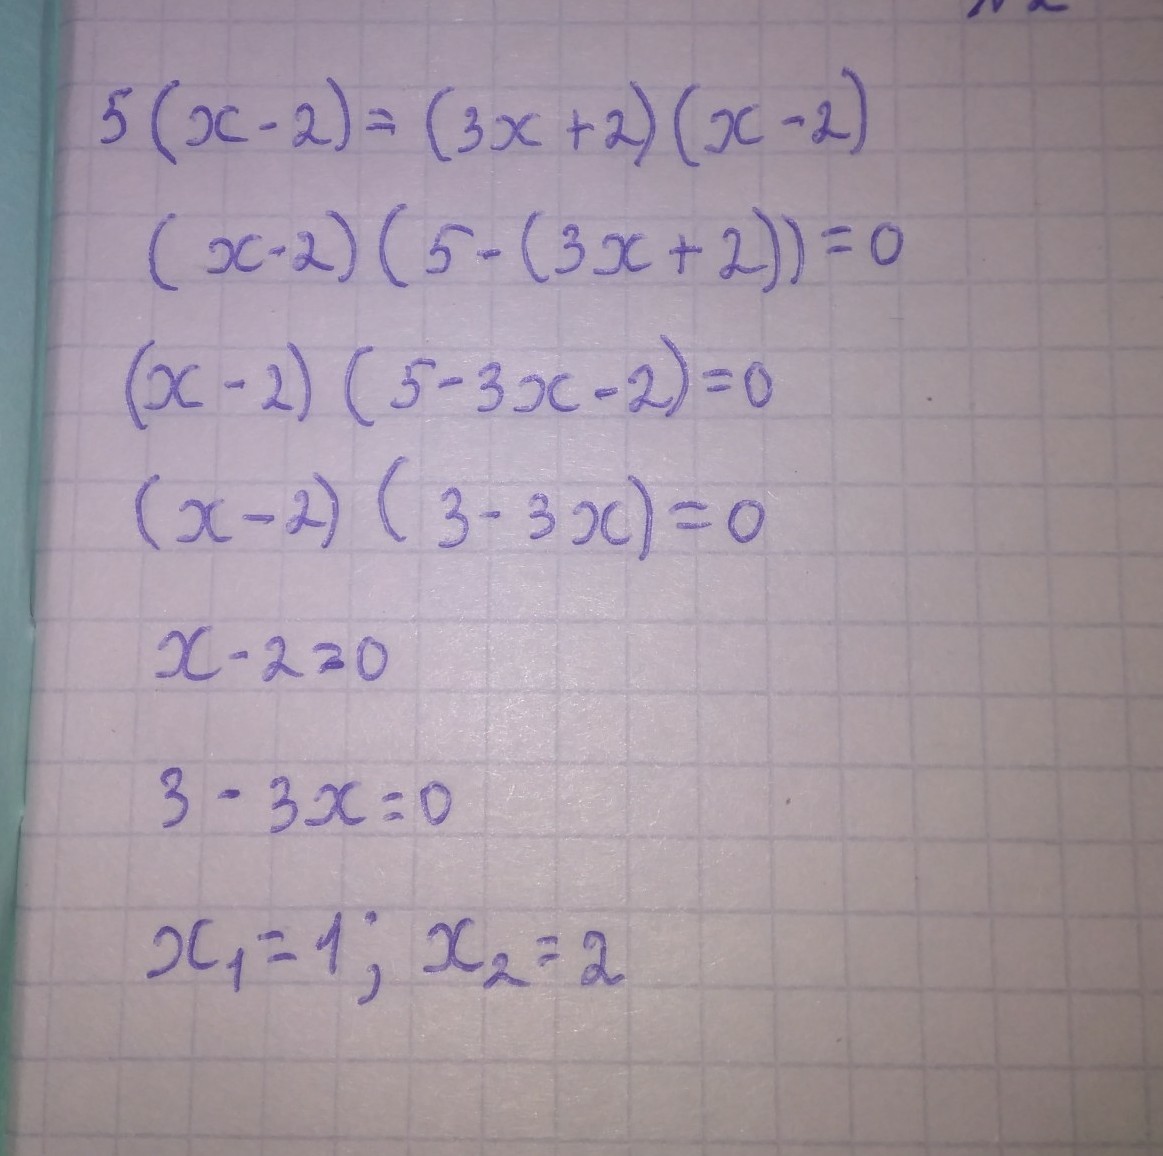 5(x-2)=(3x+2)(x-2)
(x-2)(5-(3x+2))=0
(x-2)(5-3x-2)=0
(x-2)(3-3x)=0
x-2=0
3-3x=0
x₁=1; x₂=2